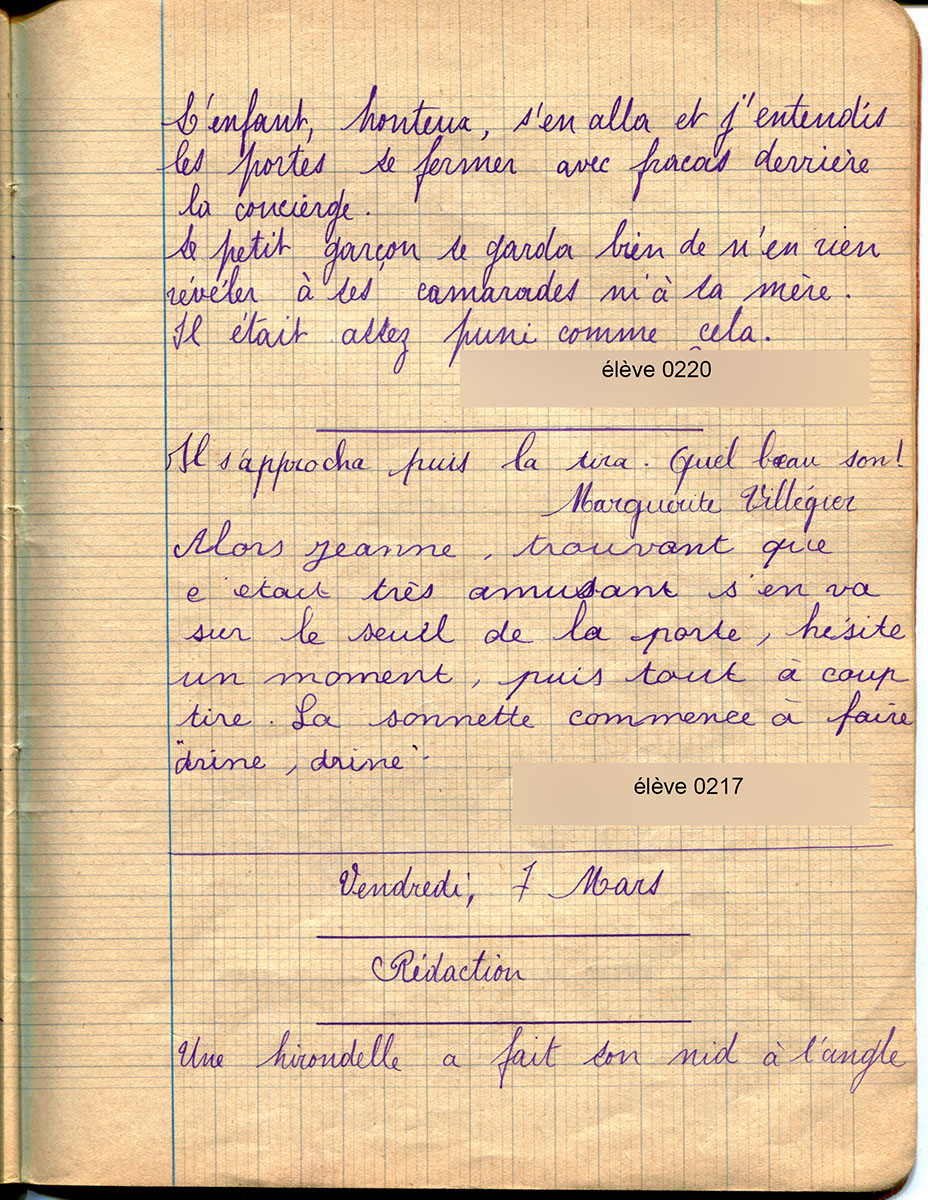 L'enfant, honteux, s'en alla et j'entendis
les portes se fermer avec fracas derrière
la concierge.
Le petit garçon se garda bien de n'en rien
révéler à ses camarades ni à sa mère.
Il était assez puni comme cela.
élève 0220
Il s'approcha puis la tira. Quel beau son!
Marguerite Villégier
Alors Jeanne, trouvant que
c'était très amusant s'en va
sur le seuil de la porte, hésite
un moment, puis tout à coup
tire. La sonnette commence à faire
"drine, drine".
élève 0217
Vendredi, 7 Mars
Rédaction
Une hirondelle a fait son nid à l'angle